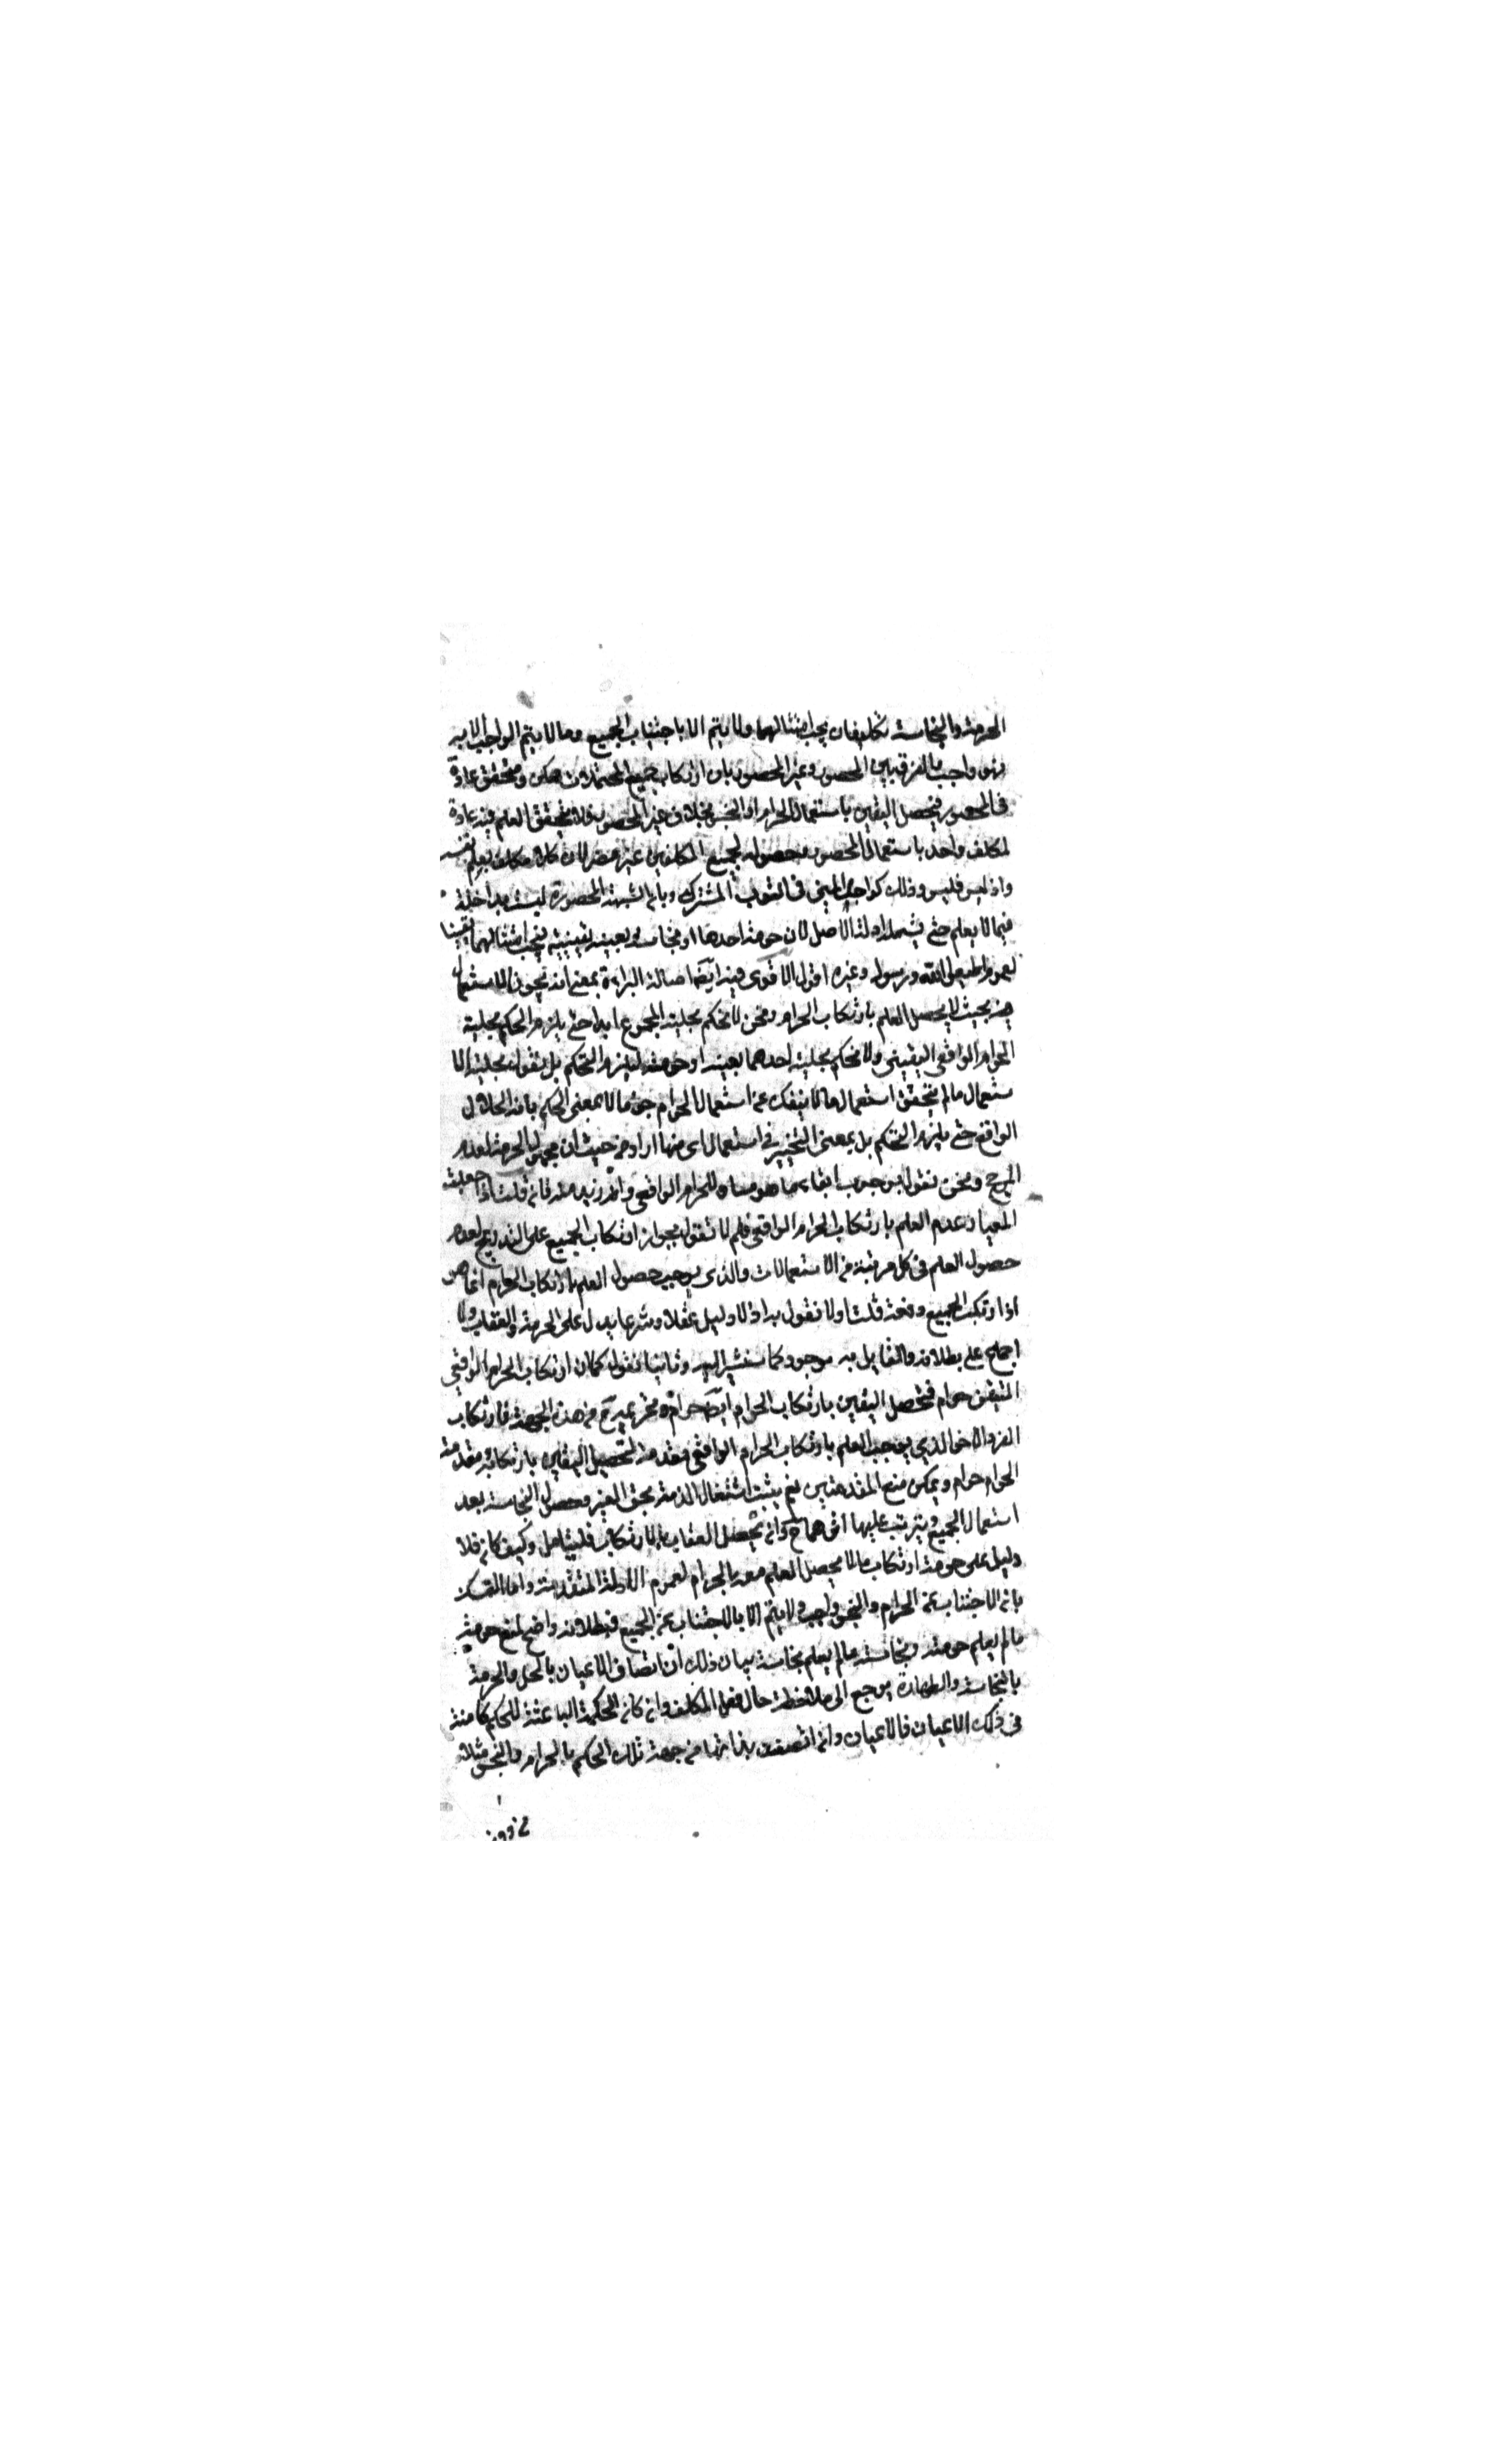 الحرمة والنجاسة تكليفان يجب امتثالهما ولا يتم الا باجتناب الجميع وما لا يتم الواجب الا به
فهو واجب بالفرق بين المحصور وغير المحصور بان ارتكاب جميع المحتملات ممكن ومتحقق عادة
في المحصور فيحصل اليقين باستعمال الحرام او النجس بخلاف غير المحصور فلا يتحقق العلم فيه عادة
لمكلف واحد باستعمال المحصور وحصوله لجميع المكلفين غير مضر لان كلا مكلف بعلم نفسه
واذ ليس فليس وذلك كواجدي المني في الثوب المشترك وبان الشبهة المحصورة ليست بداخلة
فيما لا يعلم حتى يشمله ادلة الاصل لان حرمة احدها او نجاسته بعينه يقينية فيجب امتثالهما يقينا
لعموم اطيعوا الله ورسوله وغيره اقول الاقوى فيه ايضا اصالة البراءة بمعنى انه يجوز الاستعمال
منه بحيث لا يحصل العلم بارتكاب الحرام ونحن لا نحكم بحلية المجموع ابدا حتى يلزم الحكم بحلية
الحرام الواقعي اليقيني ولا نحكم بحلية احدهما بعينه او حرمته ليلزم التحكم بل نقول بحلية الا
ستعمال ما لم يتحقق استعمال ما لا ينفك عن استعمال الحرام جزما لا بمعنى الحكم بانه الحلال
الواقعي حتى يلزم التحكم بل بمعنى التخيير في استعمال اي منها اراد من حيث انه مجهول الحرمة لعدم
المرجح ونحن نقول بوجوب ابقاء ما هو مساو للحرام الواقعي او ازيد منه فان قلت اذا جعلت
المعيار عدم العلم بارتكاب الحرام الواقعي فلم لا تقول بجواز ارتكاب الجميع على التدريج لعدم
حصول العلم في كل مرتبة من الاستعمالات والذي يوجب حصول العلم بارتكاب الحرام انما هو
اذا ارتكب الجميع دفعة قلت اولا نقول به اذ لا دليل عقلا وشرعا يدل على الحرمة والعقاب ولا
اجماع على بطلانه والقايل به موجود كما سنشير اليه وثانيا نقول كما ان ارتكاب الحرام الواقعي
المتيقن حرام فتحصيل اليقين بارتكاب الحرام ايضا حرام من هذه الجهة فارتكاب
الفرد الاخر الذي يوجب العلم بارتكاب الحرام الواقعي مقدمة لتحصيل اليقين بارتكابه ومقدمة
الحرام حرام ويمكن منع المقدمتين نعم يثبت اشتغال الذمة بحق الغير وحصول النجاسة بعد
استعمال الجميع ويترتب عليها اثرهما ح وان لم يحصل العقاب بالارتكاب فليتامل وكيف كان فلا
دليل على حرمة ارتكاب ما لا يحصل العلم معه بالحرام لعموم الادلة المتقدمة واما التمسك
بان الاجتناب عن الحرام والنجس واجب ولا يتم الا بالاجتناب عن الجميع فبطلانه واضح لمنع حرمة
ما لم يعلم حرمته ونجاسة ما لم يعلم نجاسته بيان ذلك ان اتصاف الاعيان بالحل والحرمة
بالنجاسة والطهارة يرجع الى ملاحظة حال فعل المكلف وان كان الحكمة الباعثة للحكم كامنة
في ذلك الاعيان فالاعيان وان اتصفت بذاتها من جهة تلك الحكم بالحرام والنجس مثلا